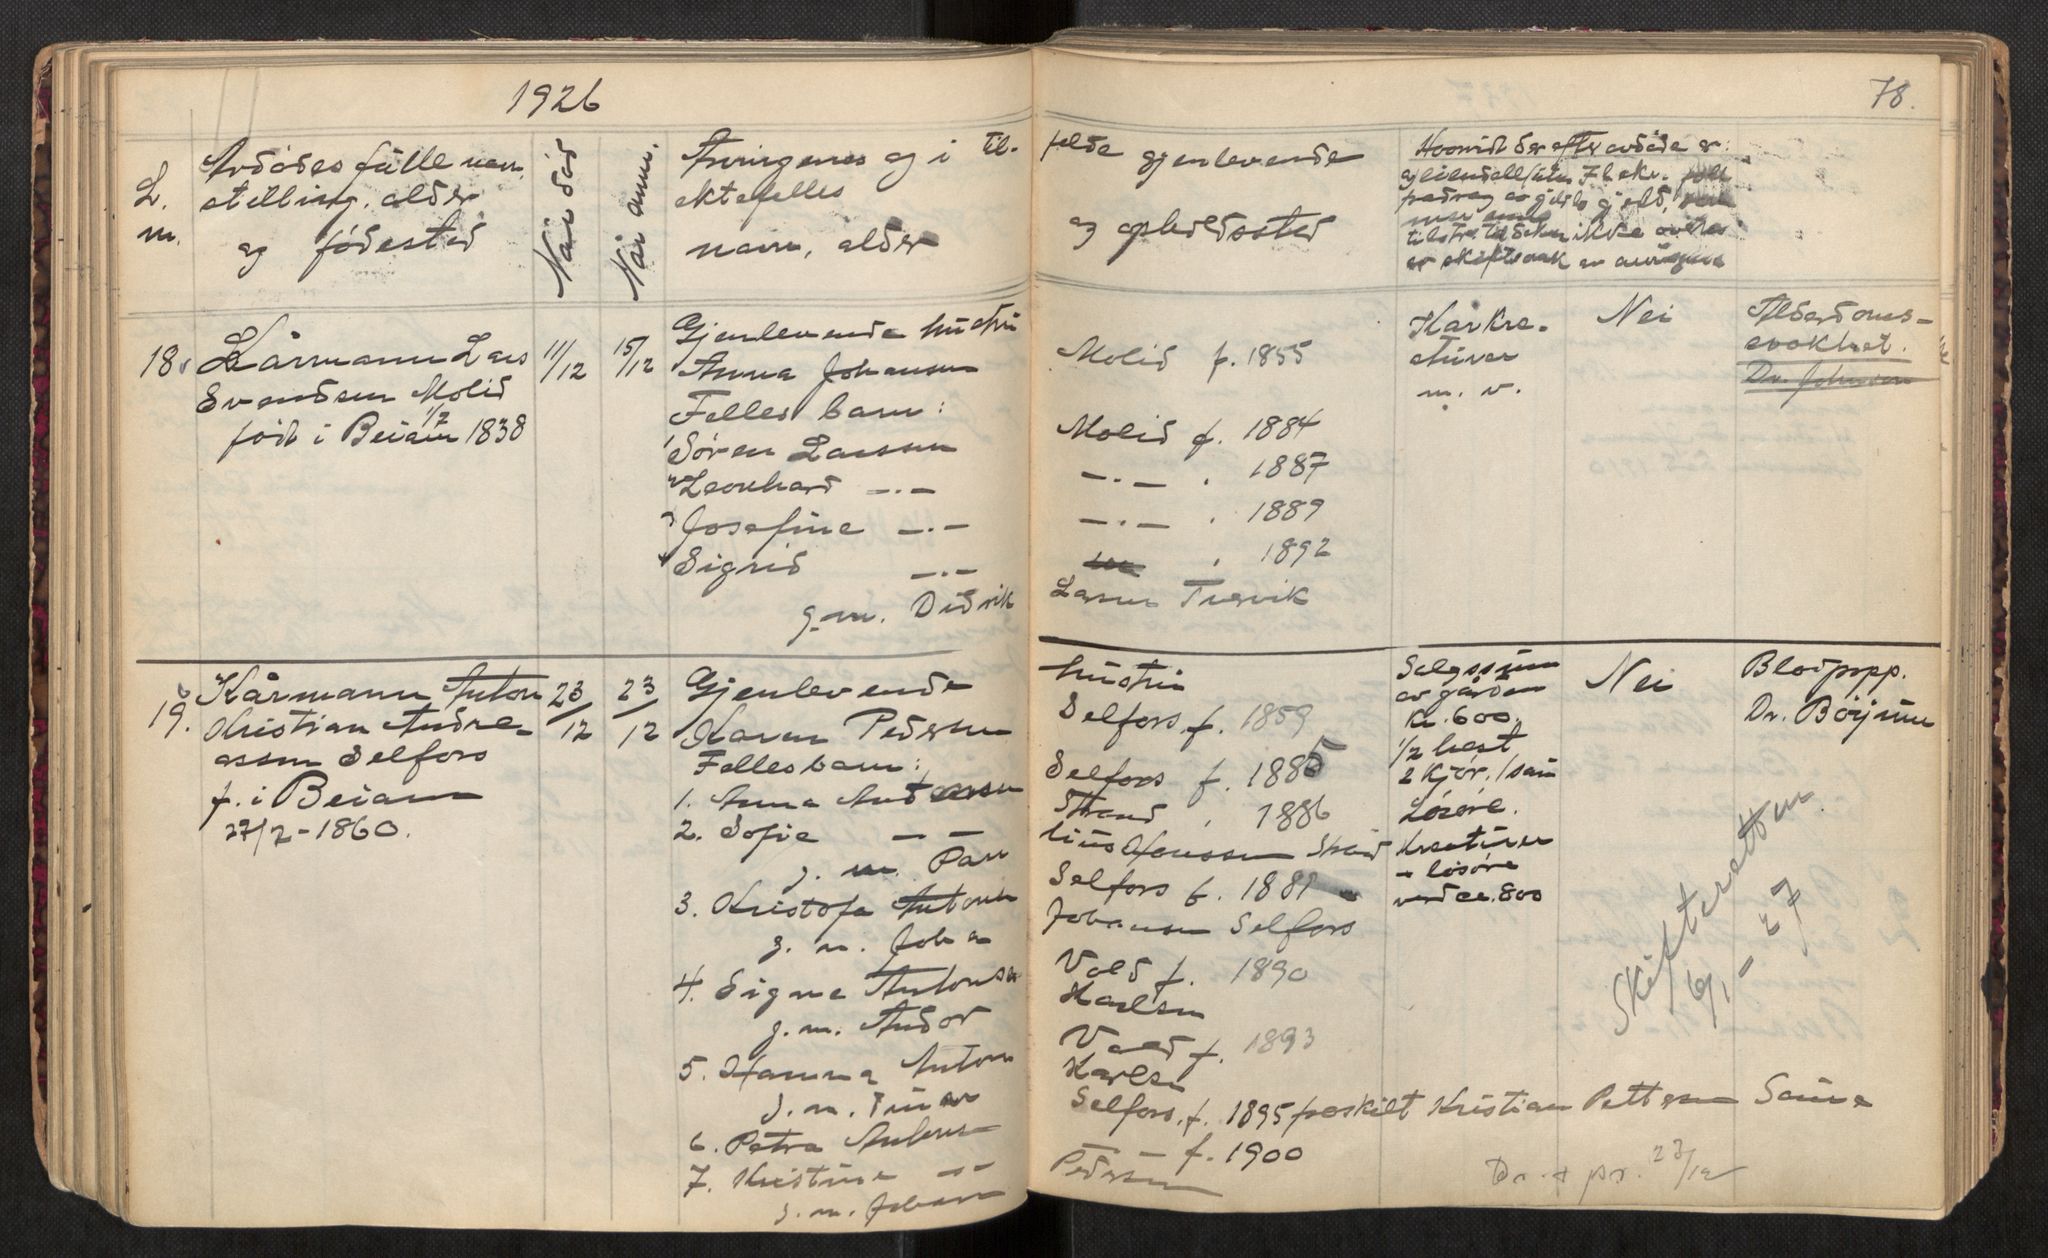 1926
78.
L. m.
Avdødes fulle navn,
stilling, alder
og fødested
Når død
Når anm.
Arvingenes og i til-
ektefelles
navn, alder
felde gjenlevende
og opholdssted
Hvorvidt der efter avdøde er:
18. Kårmann Lars
Evensen Molid
født i Beiarn 1/2 1838
11/12
15/12
Gjenlevende hustru
Anna Johansen
Molid f. 1855
Felles barn:
1 Søren Larssen Molid f. 1884
2 Leonhard —.— —.— . 1887
3 Josefine —.— —.— . 1889
4 Sigrid —.— . 1892
g.m. Didrik Larsen Tvervik
Kår kre-
aturer
m. v.
Nei
Alderdoms-
svakhet.
Dr. Johnsen
19. Kårmann Anton
Kristian Andre-
assen Selfors
f. i Beiarn
27/2-1860.
23/12
23/12
Gjenlevende hustru
Karen Pedersen Selfors f. 1859
Felles barn:
1. Anna Antonsen Selfors f. 1885
2. Sofie — — Strand . 1886
g. m. Paulius Hanssen Strand
3. Kristofa Antonsen Selfors f. 188
g. m. Johan Johansen Selfors
4. Signe Antonsen Vold f. 1890
g.m. Andor Karlsen
5. Hanna Antons Vold f. 1893
g.m. Karlsen
6. Petra Antons Selfors f. 1895 fraskilt Kristian Pettersen Saura
7. Kristine — — — f. 1900
g.m. Johan Pedersen
Salgssum
av gården
kr. 600.
1/2 hest
2 kjør, 1 sau
Løsøre.
Kreaturer
- løsøre
verd ca. 800
Nei
Blodpropp.
Dr. Börjesson
Skifteretten
6/1-27
Dr. + pr. 23/12